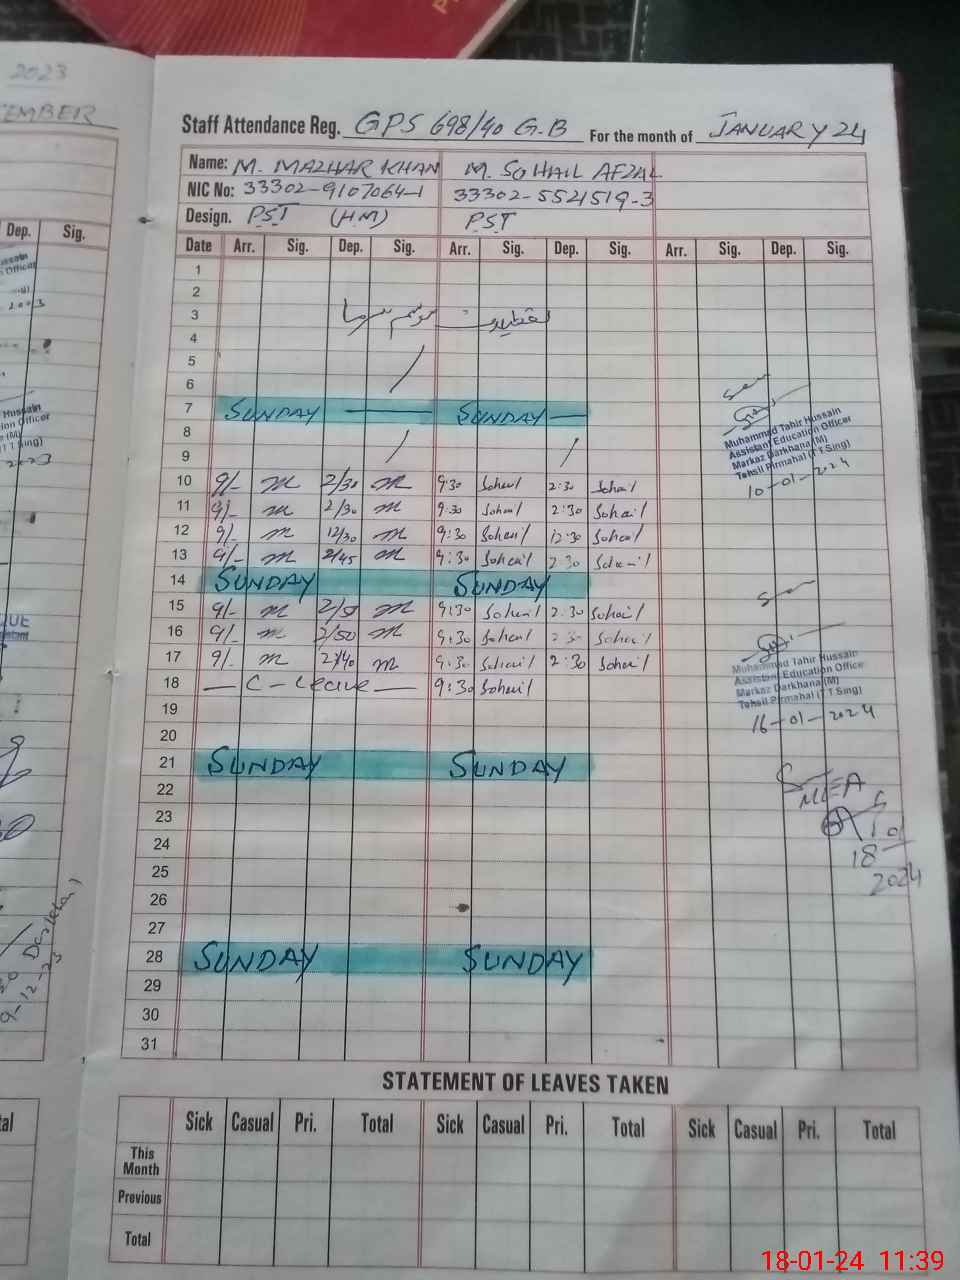 2023
EMBER
Staff Attendance Reg. GPS 698/40 G.B For the month of JANUARY 24
Name: M. MAZHAR KHAN M. SOHAIL AFZAL
NIC No: 33302-9107064-1 33302-5521519-3
Design. PST (HM) PST
Dep. Sig.
Date Arr. Sig. Dep. Sig. Arr. Sig. Dep. Sig. Arr. Sig. Dep. Sig.
1
2
3 موسم سرما
4
5
6
7 SUNDAY SUNDAY
8
9
Muhammad Tahir Hussain
Assistant Education Officer
Markaz Darkhana (M)
Tehsil Pirmahal (T T Sing)
10-01-2024
10 9/- m 2/30 m 9:30 Sohail 2:30 Sohail
11 9/- m 2/30 m 9:30 Sohail 2:30 Sohail
12 9/- m 12/30 m 9:30 Sohail 12:30 Sohail
13 9/- m 2/45 m 9:30 Sohail 2:30 Sohail
14 SUNDAY SUNDAY
15 9/- m 2/50 m 9:30 Sohail 2:30 Sohail
16 9/- m 2/50 m 9:30 Sohail 2:30 Sohail
17 9/- m 2/40 m 9:30 Sohail 2:30 Sohail
18 — C - Leave — 9:30 Sohail
Muhammad Tahir Hussain
Assistant Education Officer
Markaz Darkhana (M)
Tehsil Pirmahal (T T Sing)
16-01-2024
19
20
21 SUNDAY SUNDAY
22
MEA
23
24
18
2024
25
26
27
28 SUNDAY SUNDAY
29
30
31
STATEMENT OF LEAVES TAKEN
Sick Casual Pri. Total Sick Casual Pri. Total Sick Casual Pri. Total
This Month
Previous
Total
18-01-24 11:39